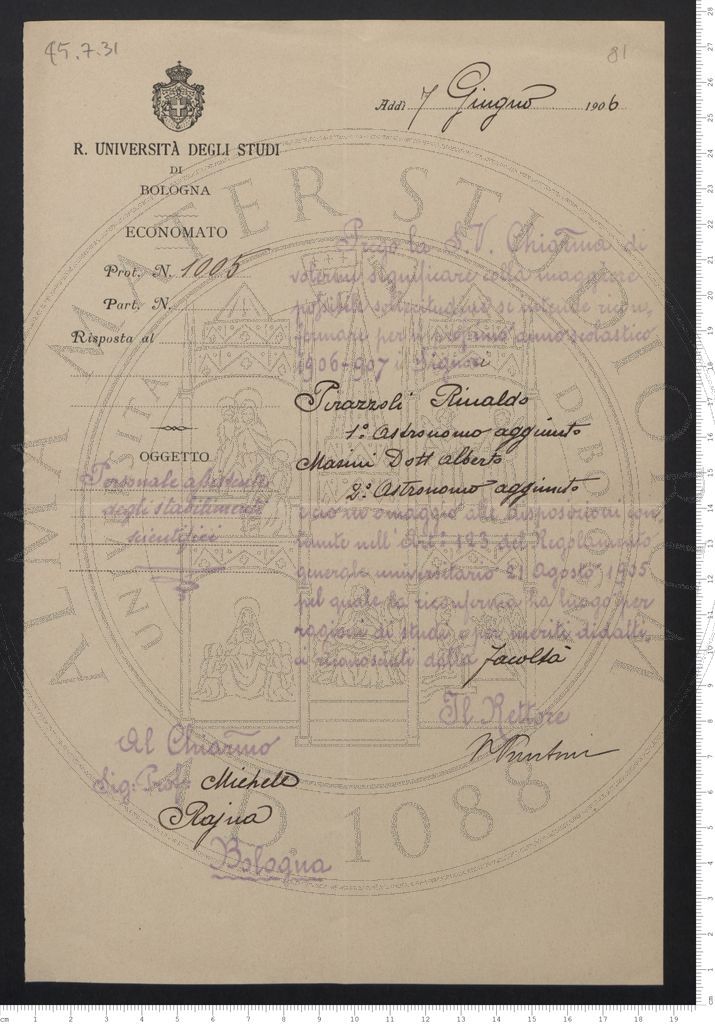 45.7.31
81
Addì 7 Giugno 1906
R. UNIVERSITÀ DEGLI STUDI
DI
BOLOGNA
ECONOMATO
Prot. N. 1005
Part. N.
Risposta al
OGGETTO
Personale assistente
degli stabilimenti
scientifici
Prego la S. V. Chiar͞ma di
volermi significare colla maggiore
possibile sollecitudine se intende ricon-
fermare per il prossimo anno scolastico
1906-907 i Signori
Pirazzoli Rinaldo
1.º Astronomo aggiunto
Masini Dott Alberto
2.º Astronomo aggiunto
e ciò in omaggio alle disposizioni con-
tenute nell'Art.º 123 del Regolamento
generale universitario 21 Agosto 1905
pel quale la riconferma ha luogo per
ragioni di studi e per meriti didatti-
ci riconosciuti dalla Facoltà
Il Rettore
V Puntoni
Al Chiar͞mo
Sig. Prof. Michele
Rajna
Bologna
ALMA MATER STUDIORUM
A.D. 1088